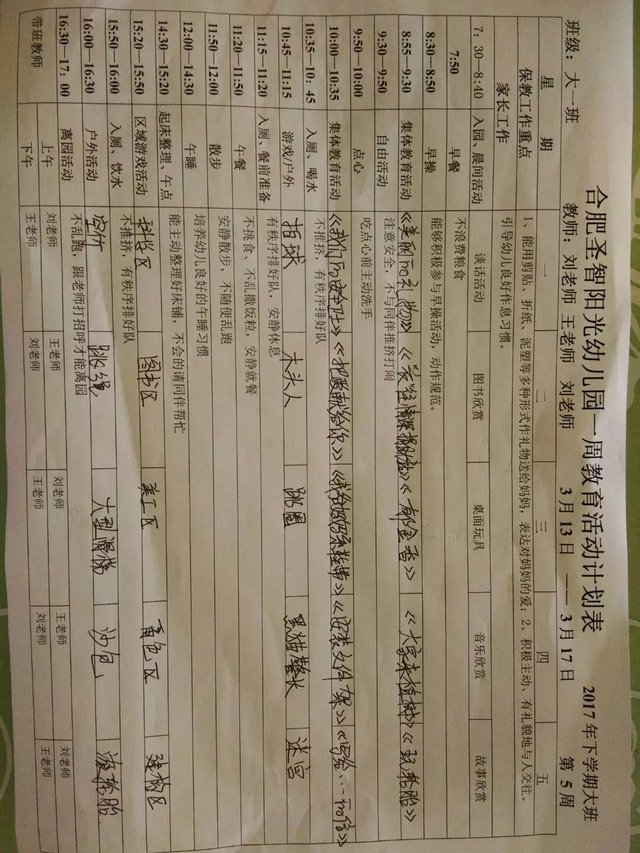 合肥圣智阳光幼儿园一周教育活动计划表
2017年下学期大班
班级：大一班 教师：刘老师 王老师 刘老师 3月13日 —— 3月17日 第5周
星 期 一 二 三 四 五
保教工作重点 1、能用剪贴、折纸、泥塑等多种形式作礼物送给妈妈，表达对妈妈的爱；2、积极主动、有礼貌地与人交往。
家长工作 引导幼儿良好作息习惯。
7：30—8:40 入园、晨间活动 谈话活动 图书欣赏 桌面玩具 音乐欣赏 故事欣赏
7:50 早餐 不浪费粮食
8:30—8:50 早操 能够积极参与早操活动，动作规范。
8:55—9:30 集体教育活动 《美丽的礼物》 《郁金香》 《大家来植树》 《玩轮胎》
9:30—9:50 自由活动 注意安全，不与同伴推挤打闹
9:50—10:00 点心 吃点心前主动洗手
10:00—10:35 集体教育活动 《把歌献给你》
10:35—10：45 入厕、喝水 不推挤，有秩序排好队
10:45—11:15 游戏/户外 拍球 木头人 跳圈 黑猫警长 迷宫
有秩序排好队，安静休息
11:15—11:20 入厕、餐前准备
11:20—11:50 午餐 不挑食、不乱撒饭粒，安静就餐
11:50—12:00 散步 安静散步，不随便乱跑
12:00—14:30 午睡 培养幼儿良好的午睡习惯
14:30—15:20 起床整理、午点 能主动整理好床铺，不会的请同伴帮忙
15:20—15:50 区域游戏活动 图书区 美工区 角色区 建构区
15:50—16:00 入厕、饮水 不推挤，有秩序排好队
16:00—16:30 户外活动 跳绳 大型滑梯 沙包 滚轮胎
16:30—17：00 离园活动 不乱跑，跟老师打招呼才能离园
带班教师 上午 刘老师 王老师 刘老师 王老师 刘老师
下午 王老师 刘老师 王老师 刘老师 王老师